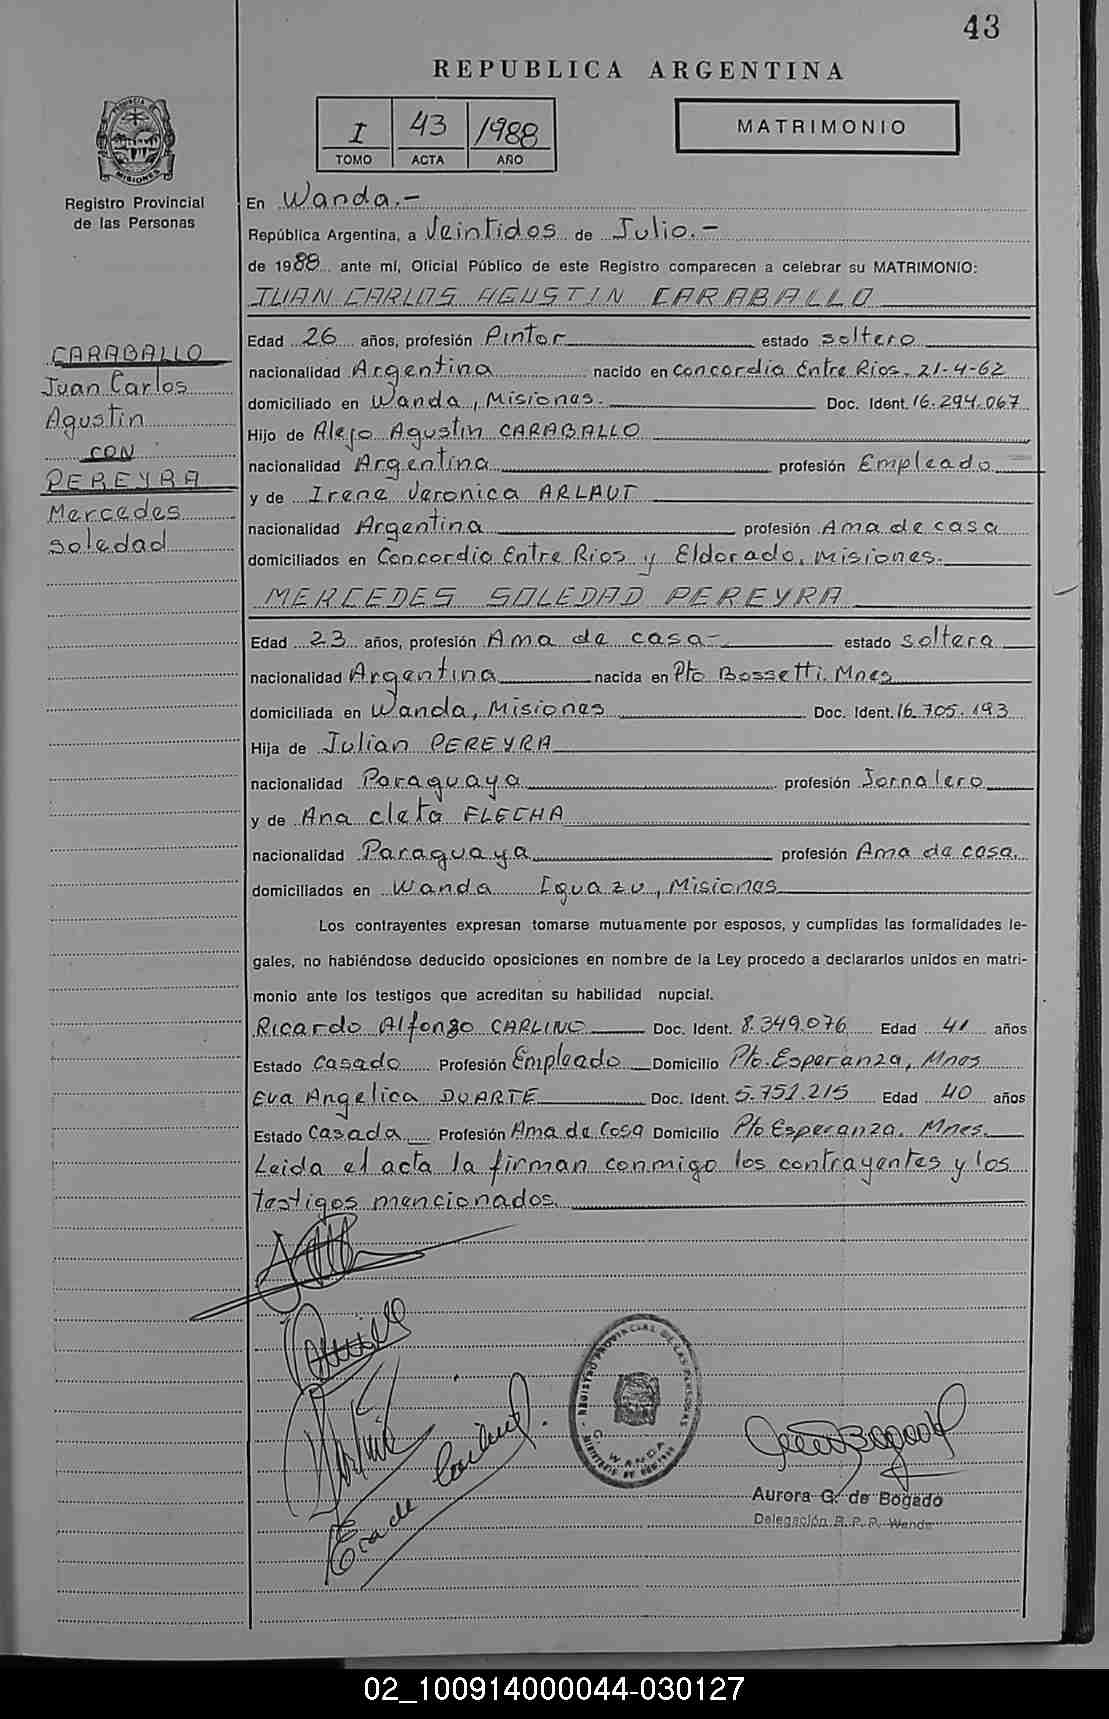 43
REPUBLICA ARGENTINA
I 43 1988
TOMO ACTA AÑO
MATRIMONIO
PROVINCIA DE MISIONES
Registro Provincial
de las Personas
En Wanda.-
República Argentina, a Veintidos de Julio.-
de 1988 ante mí, Oficial Público de este Registro comparecen a celebrar su MATRIMONIO:
JUAN CARLOS AGUSTIN CARABALLO
CARABALLO
Juan Carlos
Agustin
CON
PEREYRA
Mercedes
Soledad
Edad 26 años, profesión Pintor estado soltero
nacionalidad Argentina nacido en Concordia Entre Rios. 21-4-62
domiciliado en Wanda, Misiones. Doc. Ident. 16.294.067
Hijo de Alejo Agustin CARABALLO
nacionalidad Argentina profesión Empleado
y de Irene Veronica ARLAUT
nacionalidad Argentina profesión Ama de casa
domiciliados en Concordia Entre Rios y Eldorado, Misiones.
MERCEDES SOLEDAD PEREYRA
Edad 23 años, profesión Ama de casa- estado soltera
nacionalidad Argentina nacida en Pto Bossetti. Mnes
domiciliada en Wanda, Misiones Doc. Ident. 16.705.193
Hija de Julian PEREYRA
nacionalidad Paraguaya profesión Jornalero
y de Ana cleta FLECHA
nacionalidad Paraguaya profesión Ama de casa.
domiciliados en Wanda Iguazu, Misiones
Los contrayentes expresan tomarse mutuamente por esposos, y cumplidas las formalidades le-
gales, no habiéndose deducido oposiciones en nombre de la Ley procedo a declararlos unidos en matri-
monio ante los testigos que acreditan su habilidad nupcial.
Ricardo Alfonso CARLINO Doc. Ident. 8.349.076 Edad 41 años
Estado Casado Profesión Empleado Domicilio Pto. Esperanza, Mnes
Eva Angelica DUARTE Doc. Ident. 5.751.215 Edad 40 años
Estado Casada Profesión Ama de Casa Domicilio Pto Esperanza. Mnes.
Leida el acta la firman conmigo los contrayentes y los
testigos mencionados.
REGISTRO PROVINCIAL DE LAS PERSONAS
WANDA
Eva de Carlino.
Aurora G. de Bogado
Delegación R. P. P. Wanda
02_100914000044-030127